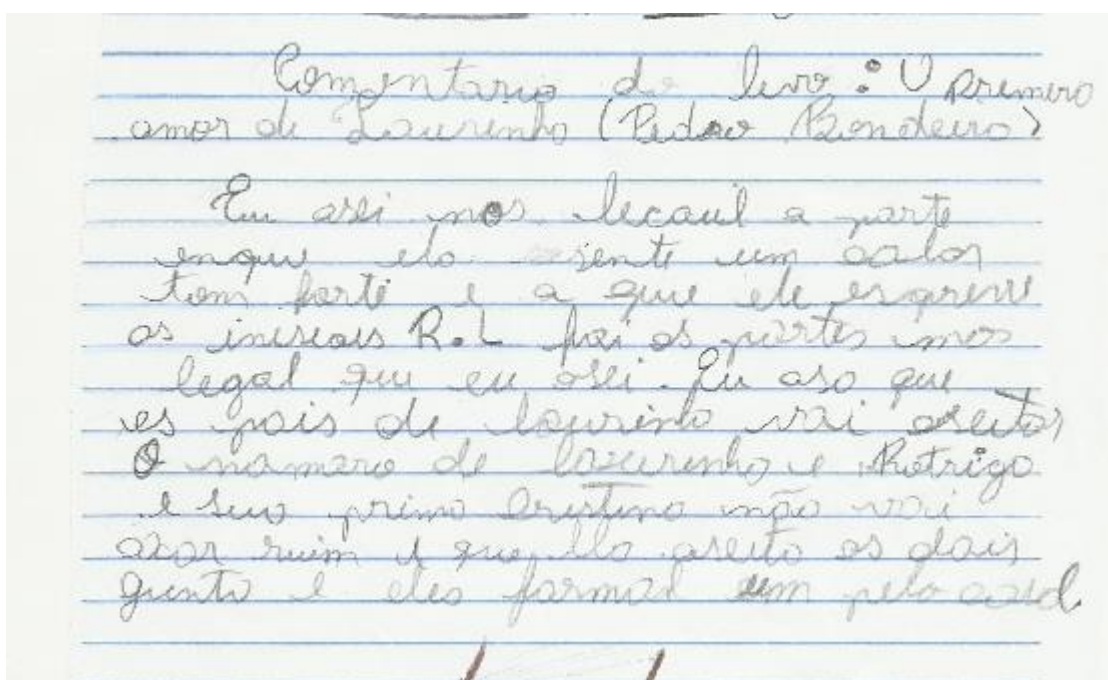 Comentario do livro: O primero
amor de Laurinho (Pedro Bandeira)
Eu asei mos lecaul a parte
enque ela sente um calor
tam forte e a que ele esqreve
as iniseais R.L foi as partes mos
legal que eu osei. Eu aso que
es pais de laurinho vai aseitar
O namaro de laurinho e Rotrigo
e seu primo não vai
axar ruim e que ela aseito os dois
gunto e eles formal um pelo casal.